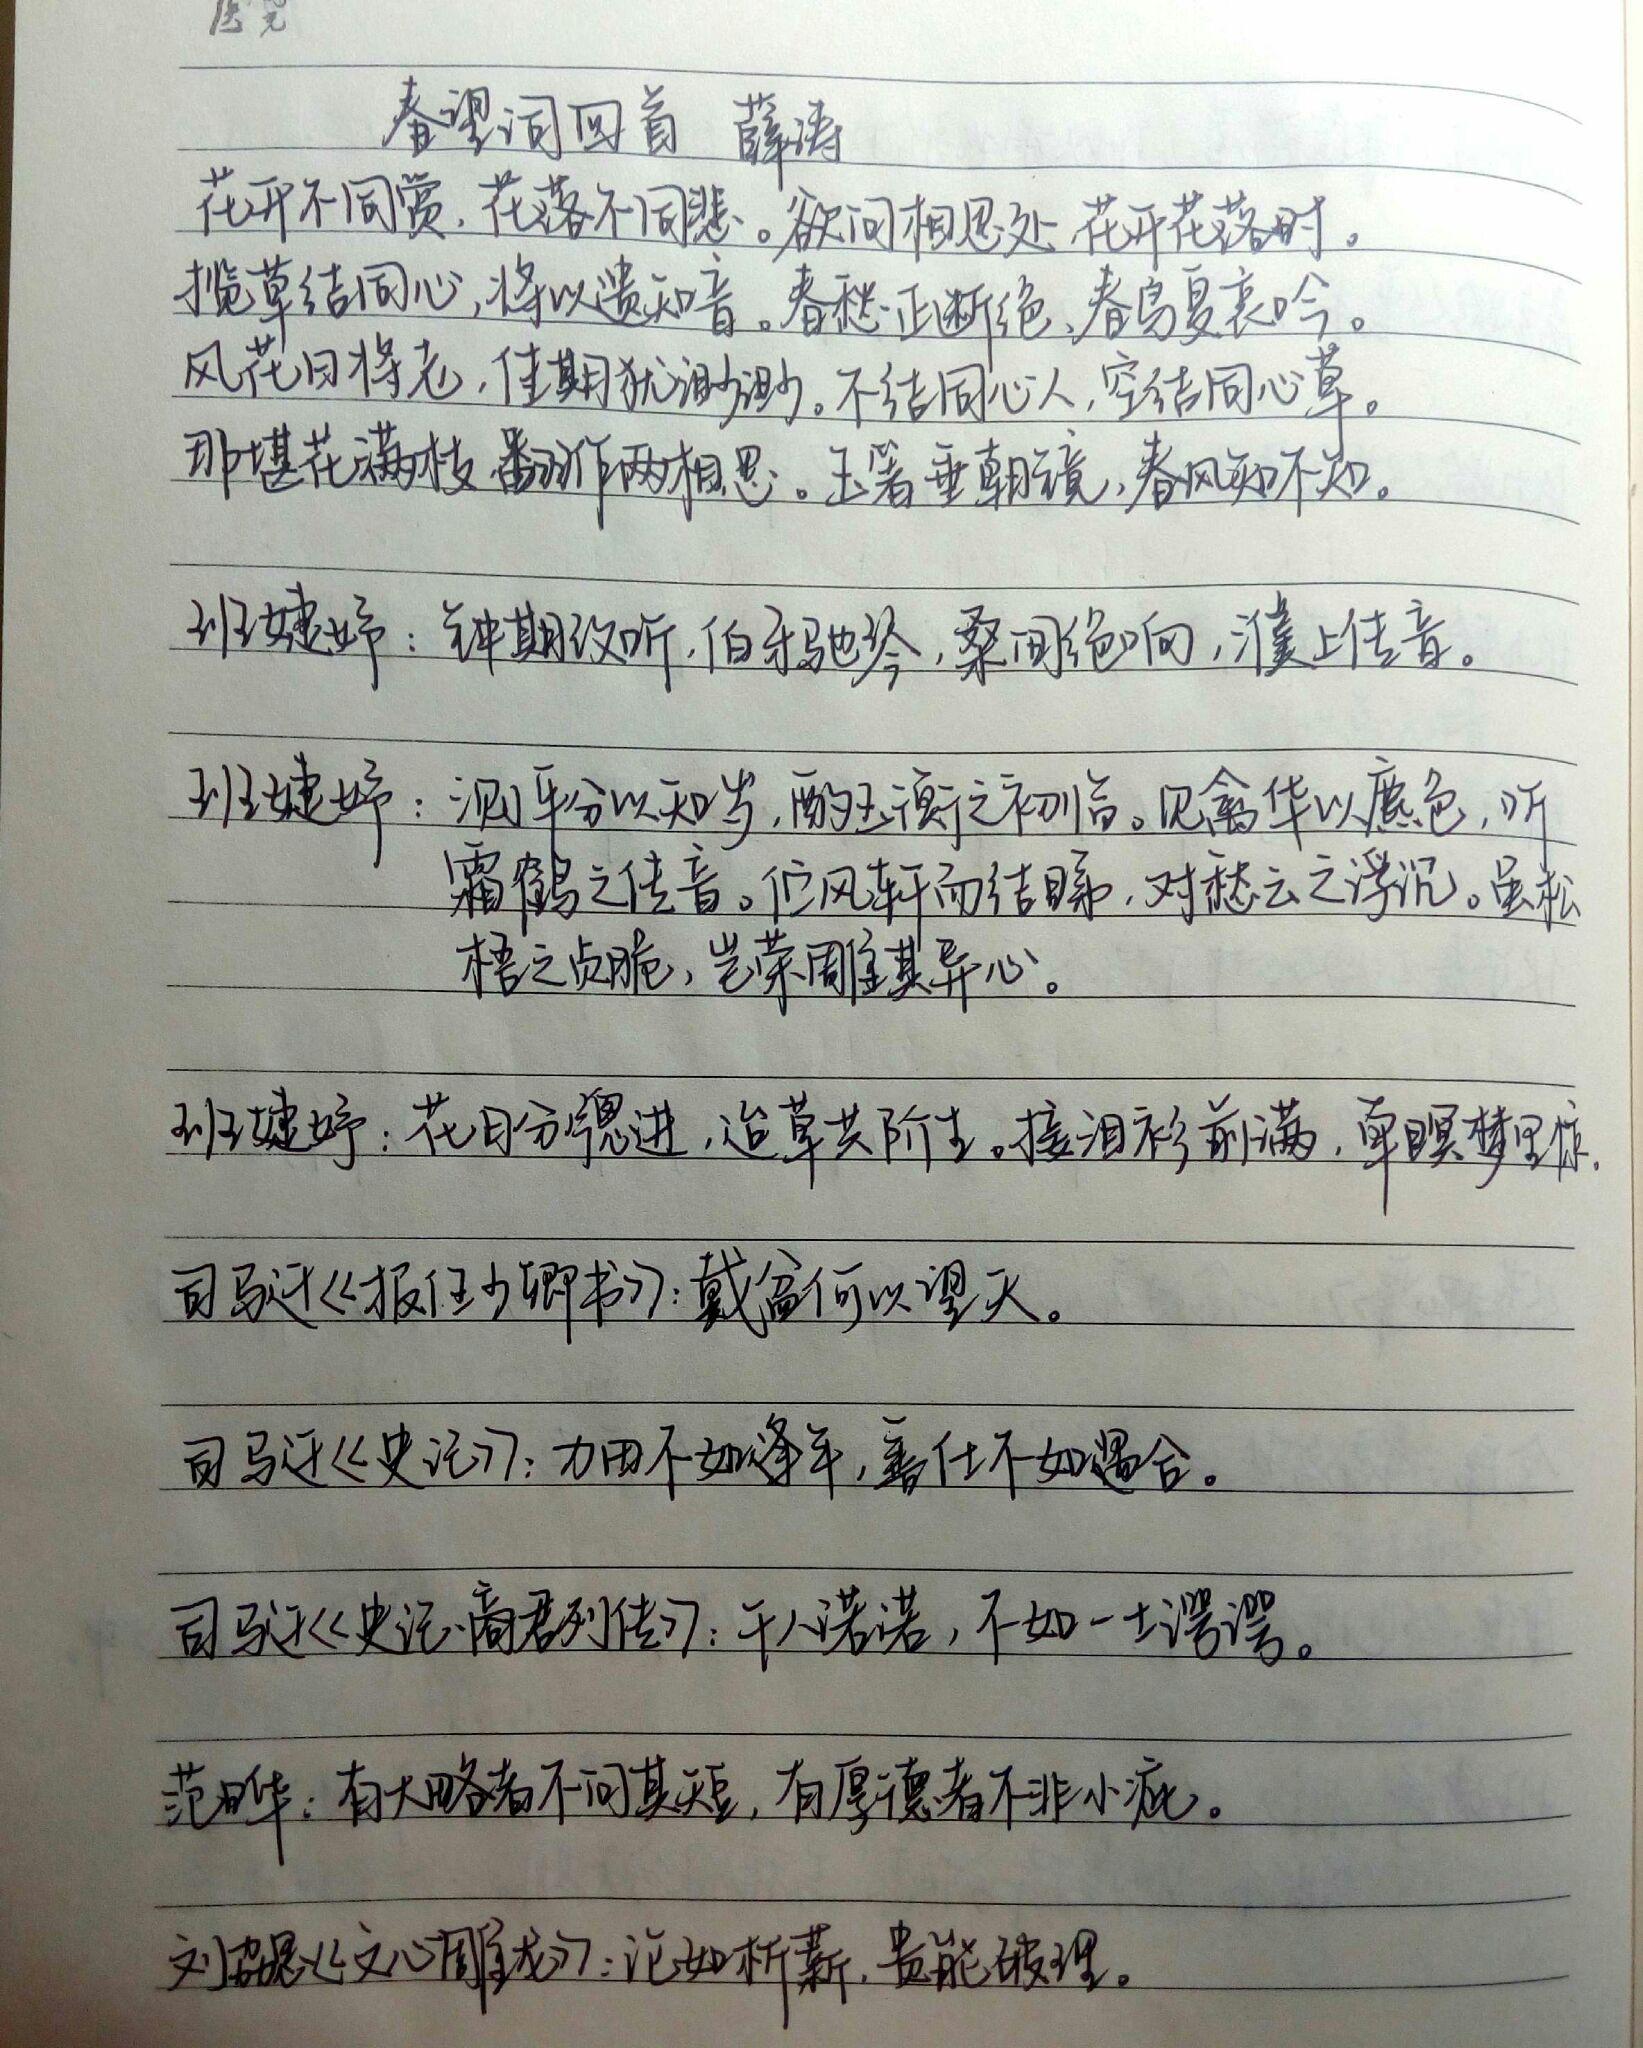 春望词四首 薛涛
花开不同赏,花落不同悲。欲问相思处,花开花落时。
揽草结同心,将以遗知音。春愁正断绝,春鸟复哀吟。
风花日将老,佳期犹渺渺。不结同心人,空结同心草。
那堪花满枝,翻作两相思。玉箸垂朝镜,春风知不知。
班婕妤:钟期改听,伯牙驰琴,桑间绝响,濮上传音。
班婕妤:测平分以知岁,酌玉衡之初临。见禽华以麃色,听
霜鹤之传音。伫风轩而结睇,对愁云之浮沉。虽松
梧之贞脆,岂荣雕其异心。
班婕妤:花日分窗进,迨草共阶生。接泪衫前满,单瞑梦里惊.
司马迁《报任少卿书》:戴盆何以望天。
司马迁《史记》:力田不如逢年,善仕不如遇合。
司马迁《史记·商君列传》:千人诺诺,不如一士谔谔。
范晔:有大略者不问其短,有厚德者不非小疵。
刘勰《文心雕龙》:论如析薪,贵能破理。